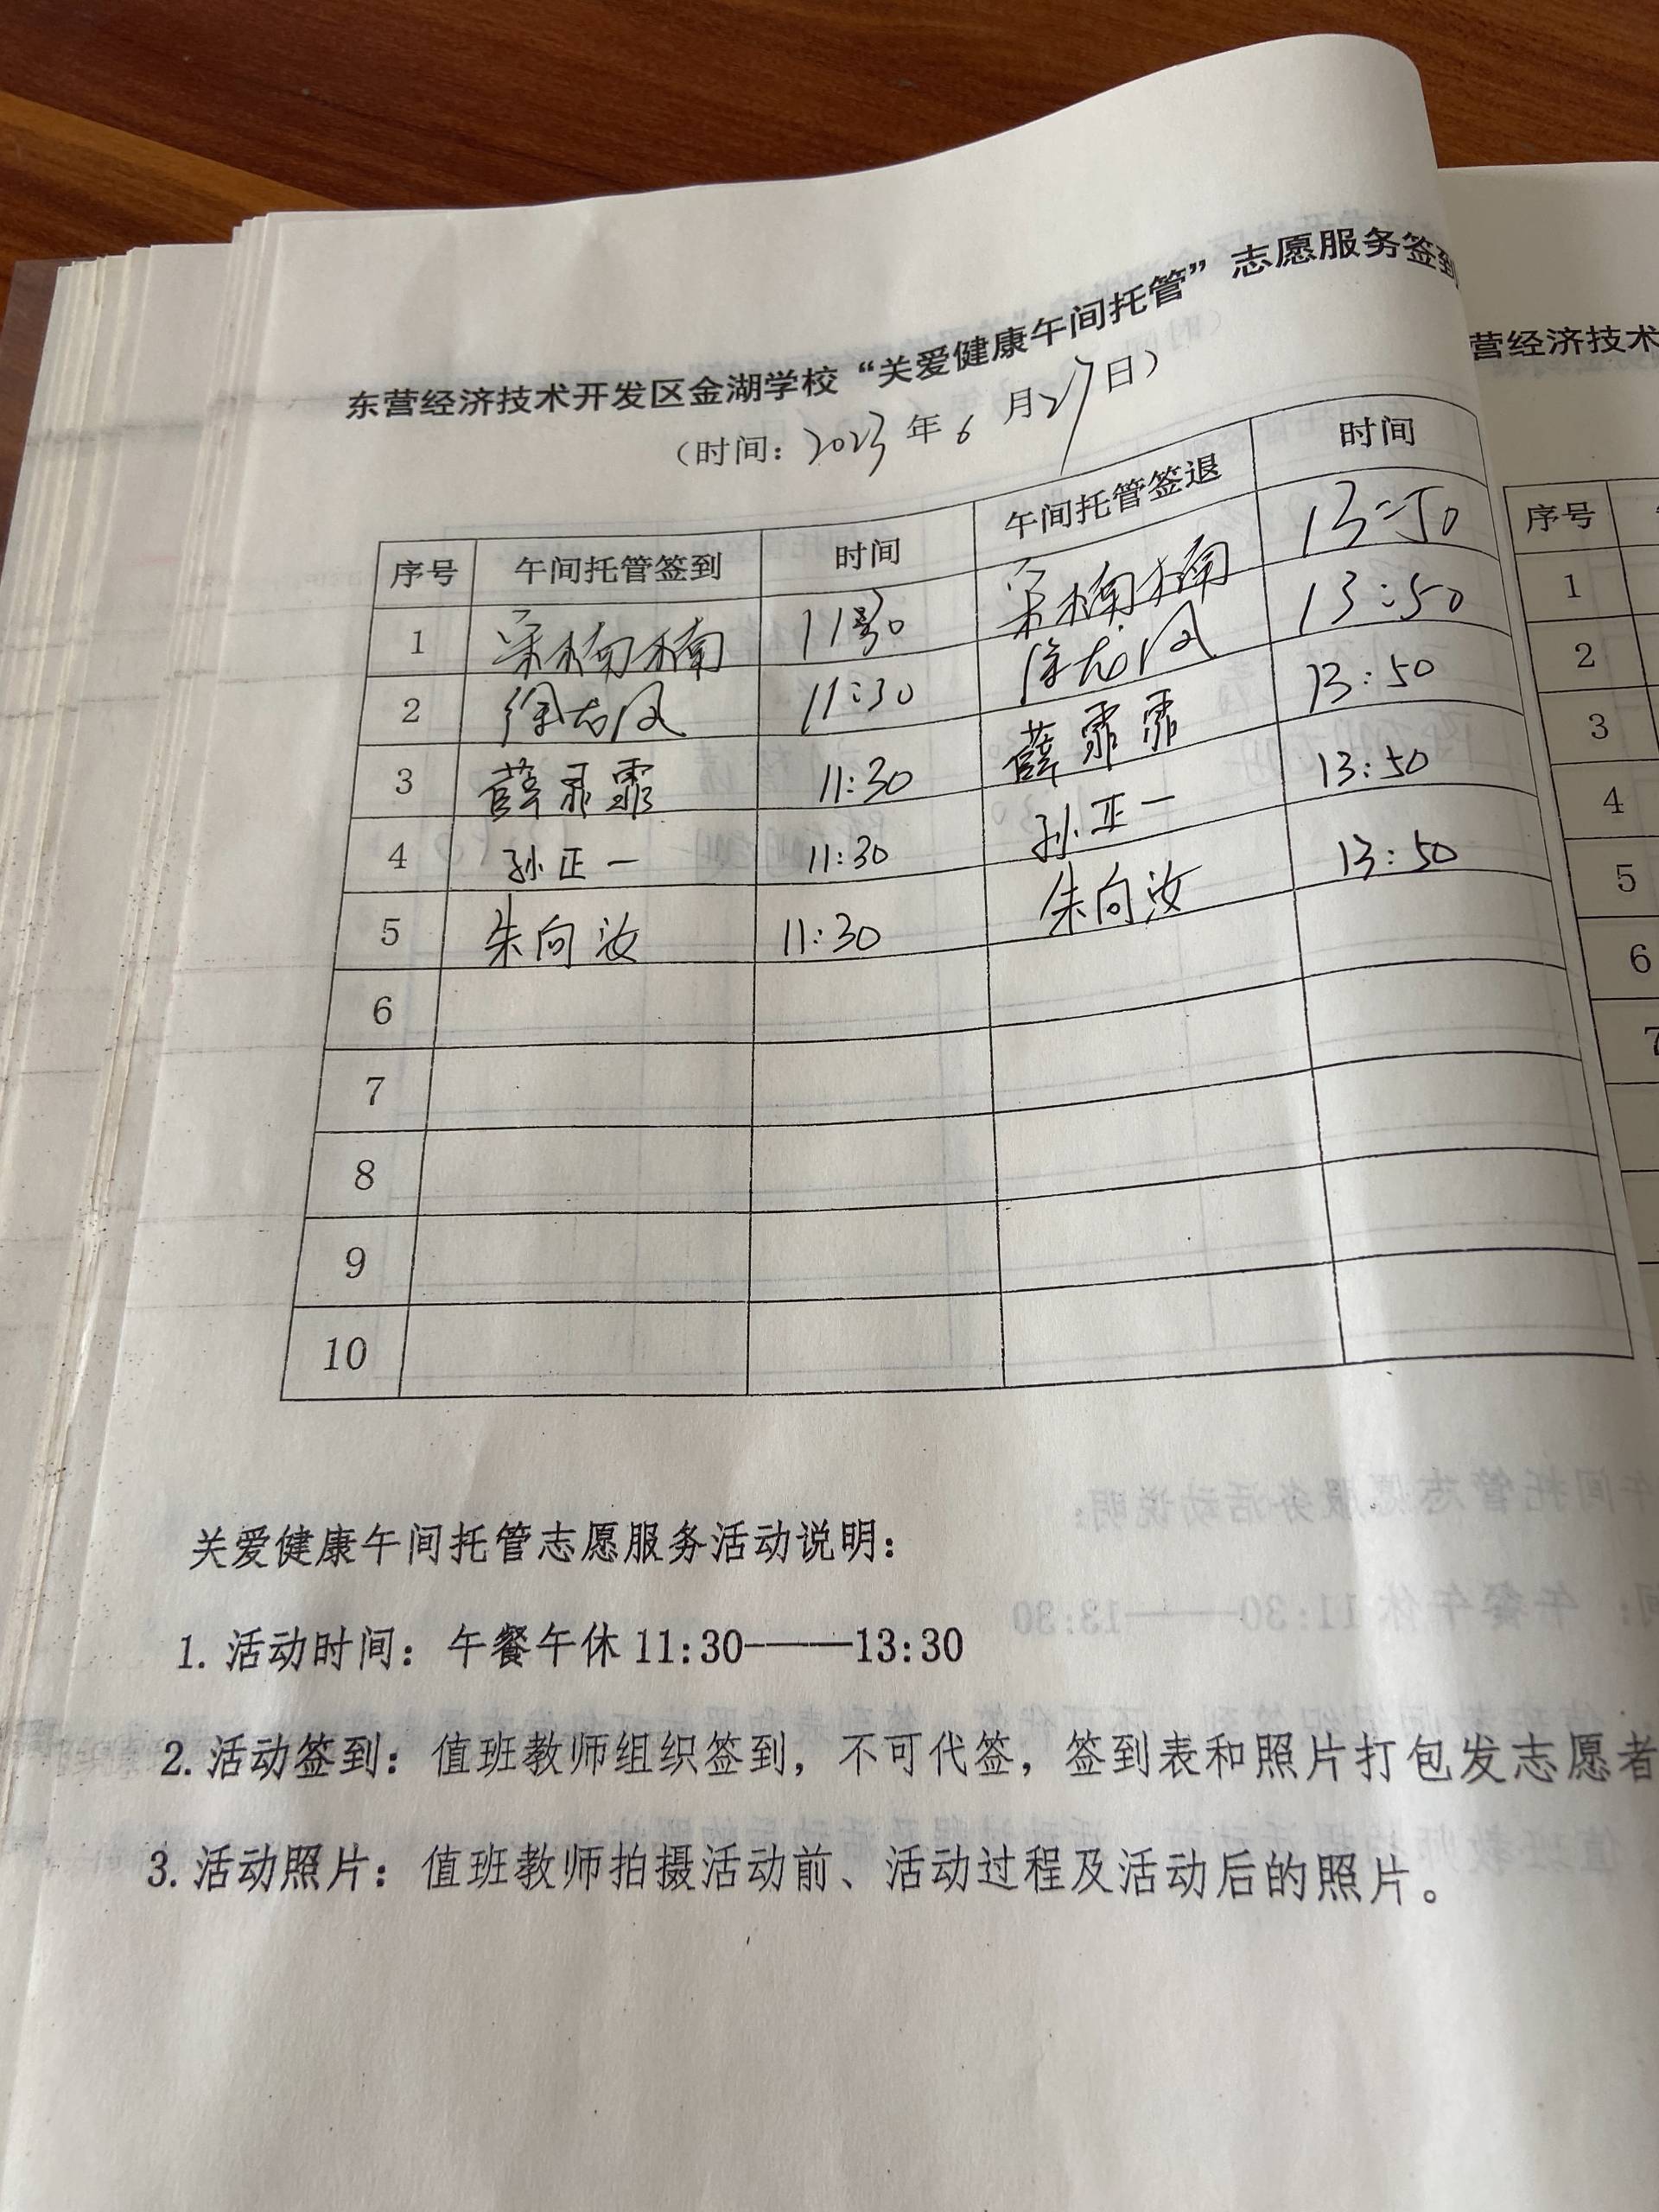 东营经济技术开发区金湖学校“关爱健康午间托管”志愿服务签到
（时间：2023年6月27日）
序号 午间托管签到 时间 午间托管签退 时间
1 楠楠 11:30 楠楠 13:50
2 徐龙凤 11:30 徐龙凤 13:50
3 薛霏霏 11:30 薛霏霏 13:50
4 孙正一 11:30 孙正一 13:50
5 朱向汝 11:30 朱向汝 13:50
6
7
8
9
10
关爱健康午间托管志愿服务活动说明：
1. 活动时间：午餐午休 11:30———13:30
2. 活动签到：值班教师组织签到，不可代签，签到表和照片打包发志愿者
3. 活动照片：值班教师拍摄活动前、活动过程及活动后的照片。
营经济技术
序号
1
2
3
4
5
6
7